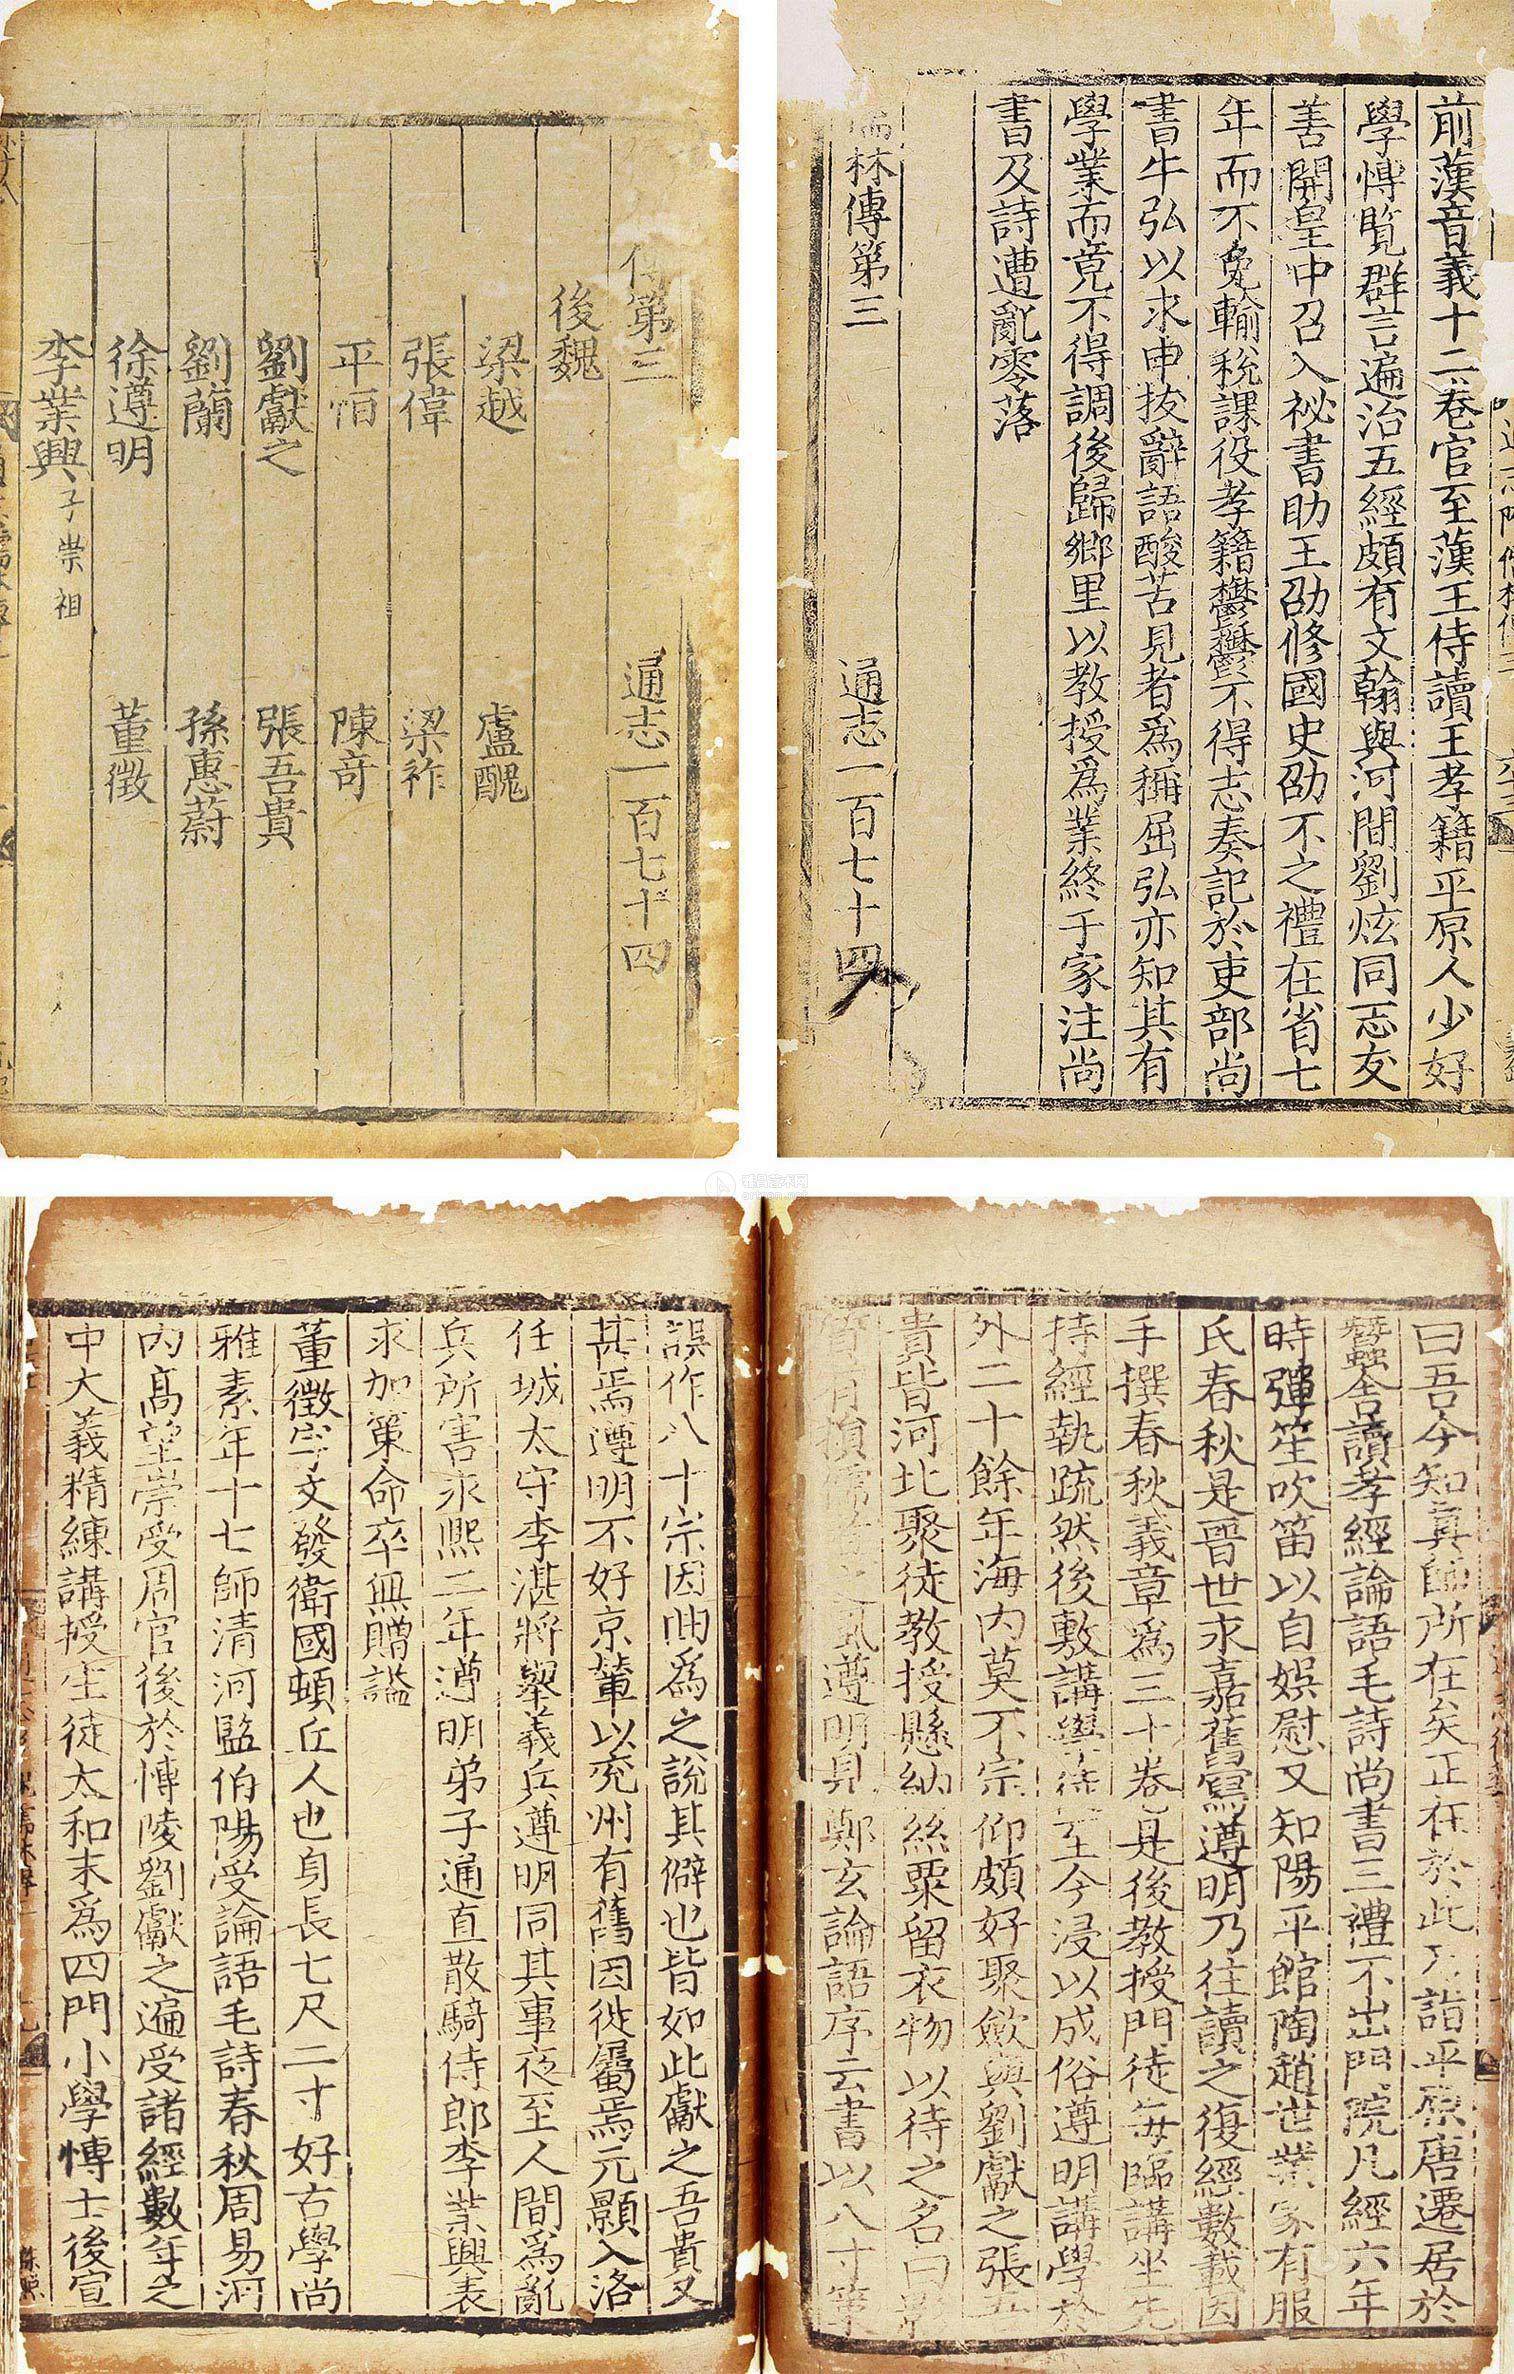 前漢音義十二卷官至漢王侍讀王孝籍平原人少好
學博覽群言遍治五經頗有文翰與河間劉炫同志友
善開皇中召入祕書助王劭修國史劭不之禮在省七
年而不免輸稅課役孝籍鬱鬱不得志奏記於吏部尚
書牛弘以求申拔辭語酸苦見者為稱屈弘亦知其有
學業而竟不得調後歸鄉里以教授為業終于家注尚
書及詩遭亂零落
儒林傳第三 通志一百七十四
傳第三 通志一百七十四
後魏
梁越 盧醜
張偉 梁祚
平恒 陳奇
劉獻之 張吾貴
劉蘭 孫惠蔚
徐遵明 董徵
李業興 子崇祖
曰吾今知真師所在矣正在於此乃詣平原唐遷居於
蠶舍讀孝經論語毛詩尚書三禮不出門院凡經六年
時彈笙吹笛以自娛慰又知陽平館陶趙世業家有服
氏春秋是晉世永嘉舊寫遵明乃往讀之復經數載因
手撰春秋義章為三十卷是後教授門徒每臨講坐先
持經執疏然後敷講學徒至今浸以成俗遵明講學於
外二十餘年海内莫不宗仰頗好聚斂與劉獻之張吾
貴皆河北聚徒教授懸納絲粟留衣物以待之名曰影
質有損儒者之風遵明見鄭玄論語序云書以八寸策
誤作八十宗因曲為之說其僻也皆如此獻之吾貴又
甚焉遵明不好京輦以兗州有舊因徙屬焉元顥入洛
任城太守李湛將舉義兵遵明同其事夜至人間為亂
兵所害永熙二年遵明弟子通直散騎侍郎李業興表
求加策命卒無贈謚
董徵字文發衛國頓丘人也身長七尺二寸好古學尚
雅素年十七師清河監伯陽受論語毛詩春秋周易河
内高望崇受周官後於博陵劉獻之遍受諸經數年之
中大義精練講授生徒太和末為四門小學博士後宣